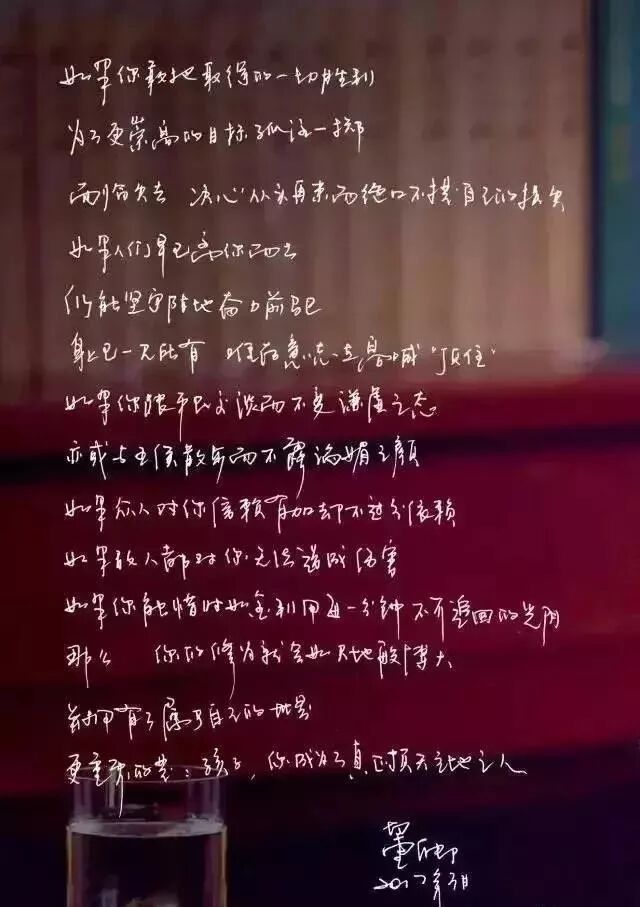 如果你敢把取得的一切胜利
为了更崇高的目标孤注一掷
面临失去 决心从头再来而绝口不提自己的损失
如果人们早已离你而去
仍能坚守阵地奋力前驱
身上已一无所有 唯存意志在高喊“顶住”
如果你跟平民交谈而不变谦虚之态
亦或与王侯散步而不露谄媚之颜
如果众人对你信赖有加却不过分依赖
如果敌人都对你无法造成伤害
如果你能惜时如金利用每一分钟不可追回的光阴
那么 你的修为就会如天地般博大
并拥有了属于自己的世界
更重要的是：孩子，你成为了真正顶天立地之人
董卿
2017年3月